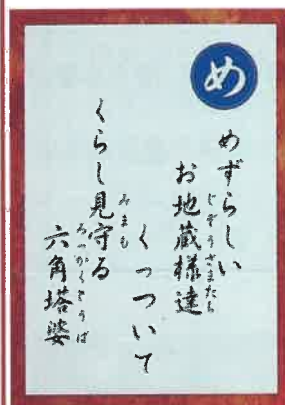 め
めずらしい
お地蔵様達
じぞうさまたち
くっついて
くらし見守る
みまも
六角塔婆
ろっかくとうば